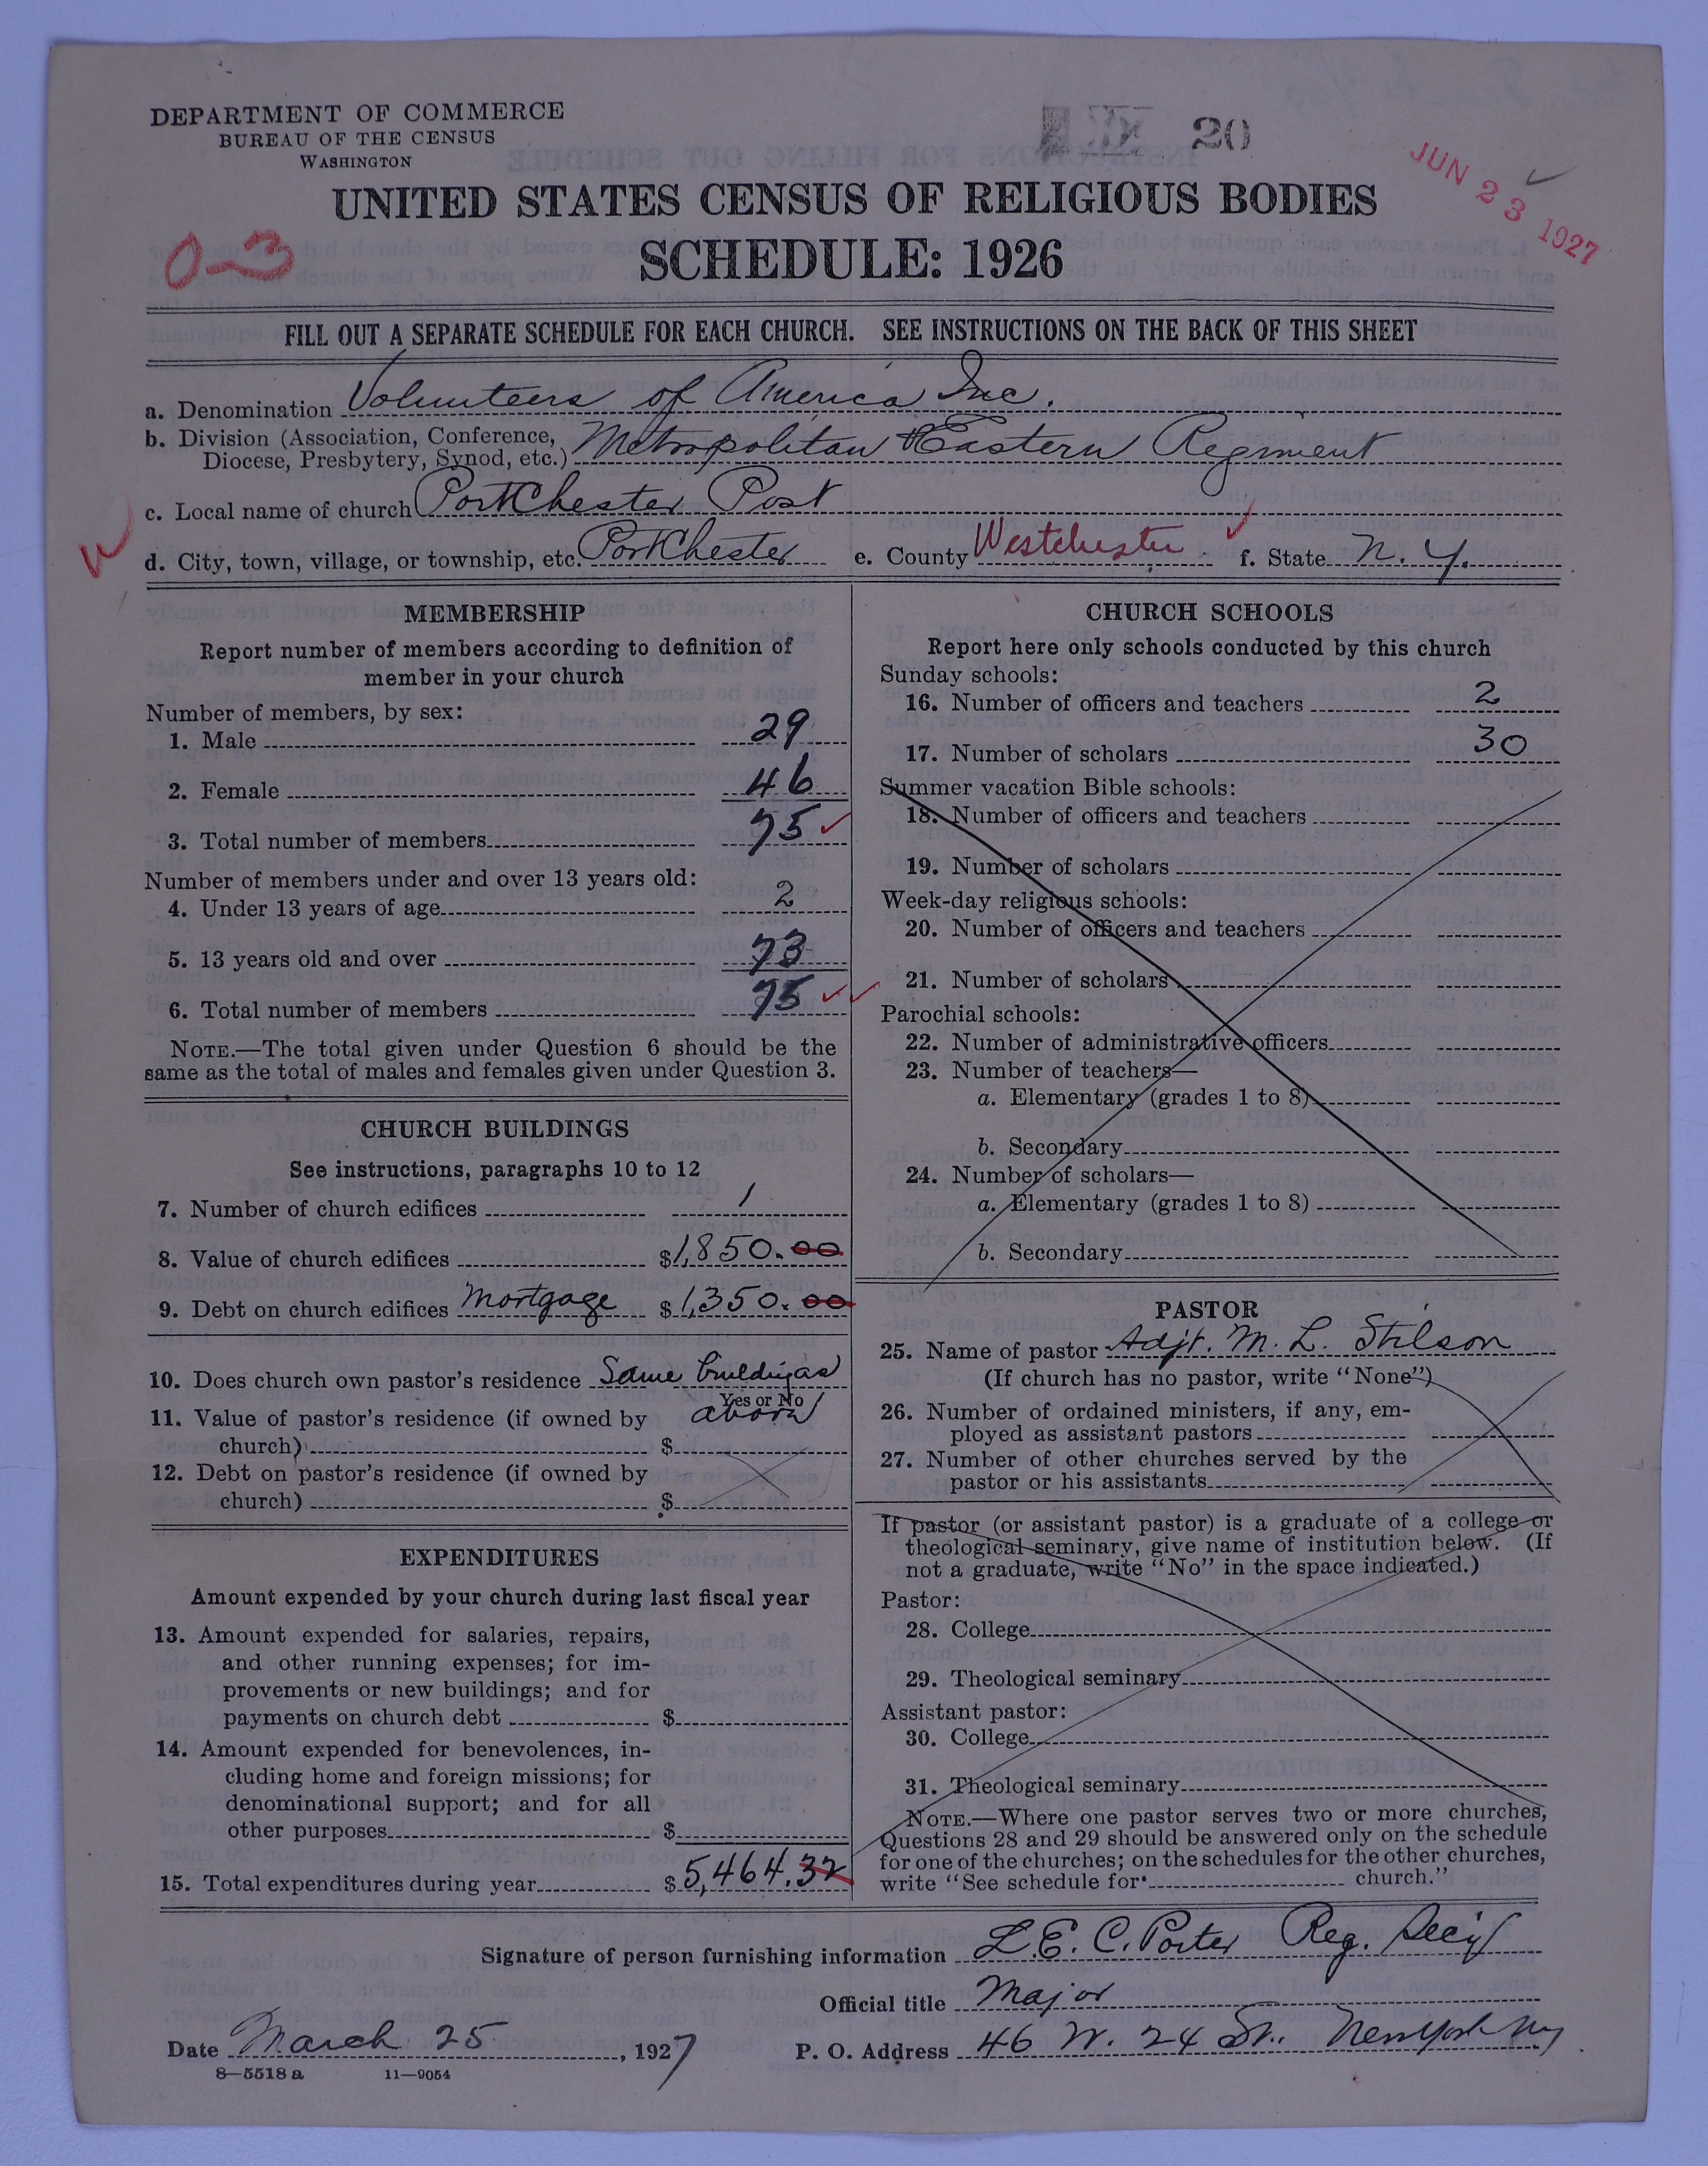 DEPARTMENT OF COMMERCE
BUREAU OF THE CENSUS
WASHINGTON
20
JUN 23 1927
UNITED STATES CENSUS OF RELIGIOUS BODIES
0-3
SCHEDULE: 1926
FILL OUT A SEPARATE SCHEDULE FOR EACH CHURCH. SEE INSTRUCTIONS ON THE BACK OF THIS SHEET
a. Denomination Volunteers of America Inc.
b. Division (Association, Conference, Diocese, Presbytery, Synod, etc.) Metropolitan Eastern Regiment
c. Local name of church PortChester Post
d. City, town, village, or township, etc. PortChester e. County Westchester f. State N. Y.
MEMBERSHIP
Report number of members according to definition of
member in your church
Number of members, by sex:
1. Male 29
2. Female 46
3. Total number of members 75
Number of members under and over 13 years old:
4. Under 13 years of age 2
5. 13 years old and over 73
6. Total number of members 75
NOTE.—The total given under Question 6 should be the
same as the total of males and females given under Question 3.
CHURCH BUILDINGS
See instructions, paragraphs 10 to 12
7. Number of church edifices 1
8. Value of church edifices $1,850.00
9. Debt on church edifices Mortgage $1,350.00
10. Does church own pastor's residence Same building as
Yes or No
above
11. Value of pastor's residence (if owned by
church) $
12. Debt on pastor's residence (if owned by
church) $
EXPENDITURES
Amount expended by your church during last fiscal year
13. Amount expended for salaries, repairs,
and other running expenses; for im-
provements or new buildings; and for
payments on church debt $
14. Amount expended for benevolences, in-
cluding home and foreign missions; for
denominational support; and for all
other purposes $
15. Total expenditures during year $5,464.32
CHURCH SCHOOLS
Report here only schools conducted by this church
Sunday schools:
16. Number of officers and teachers 2
17. Number of scholars 30
Summer vacation Bible schools:
18. Number of officers and teachers
19. Number of scholars
Week-day religious schools:
20. Number of officers and teachers
21. Number of scholars
Parochial schools:
22. Number of administrative officers
23. Number of teachers—
a. Elementary (grades 1 to 8)
b. Secondary
24. Number of scholars—
a. Elementary (grades 1 to 8)
b. Secondary
PASTOR
25. Name of pastor Adjt. M. L. Stilson
(If church has no pastor, write "None")
26. Number of ordained ministers, if any, em-
ployed as assistant pastors
27. Number of other churches served by the
pastor or his assistants
If pastor (or assistant pastor) is a graduate of a college or
theological seminary, give name of institution below. (If
not a graduate, write "No" in the space indicated.)
Pastor:
28. College
29. Theological seminary
Assistant pastor:
30. College
31. Theological seminary
NOTE.—Where one pastor serves two or more churches,
Questions 28 and 29 should be answered only on the schedule
for one of the churches; on the schedules for the other churches,
write "See schedule for church."
Signature of person furnishing information L. E. C. Porter Reg. Sec'y
Official title Major
Date March 25, 1927 P. O. Address 46 W. 24 St., New York NY
8—5518 a 11—9054